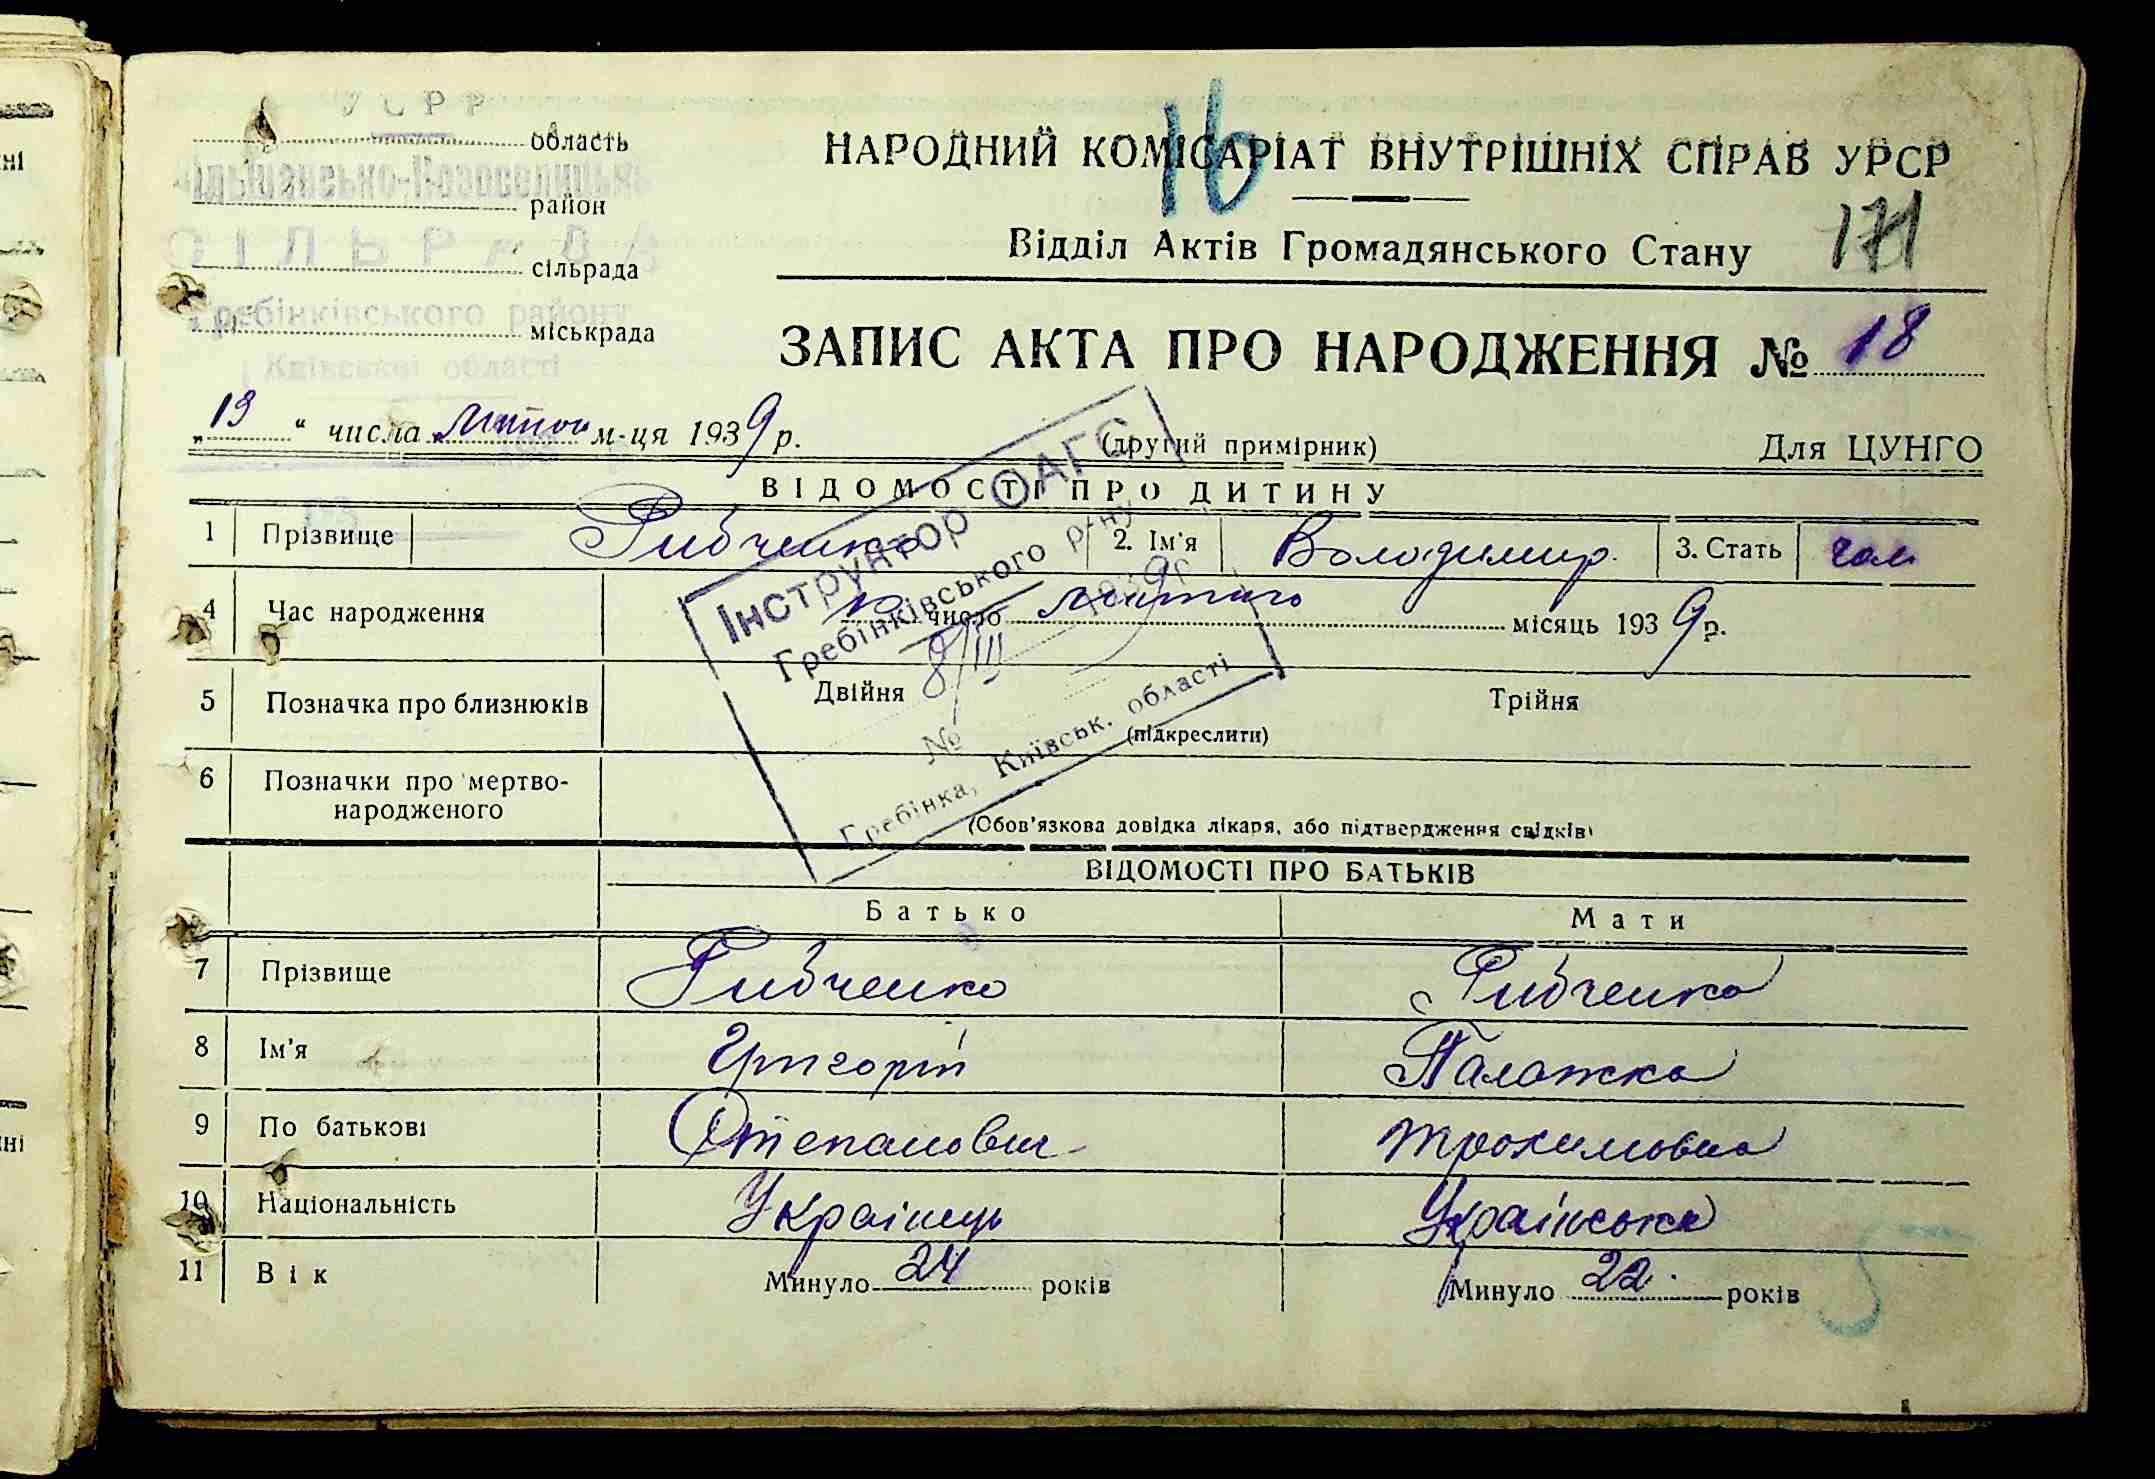 УСРР
область
район
СІЛЬРАДА
сільрада
Гребінківського району
міськрада
Київської області
16
НАРОДНИЙ КОМІСАРІАТ ВНУТРІШНІХ СПРАВ УРСР
Відділ Актів Громадянського Стану
171
ЗАПИС АКТА ПРО НАРОДЖЕННЯ № 18
„19“ числа лютого м-ця 1939 р.
(другий примірник)
Для ЦУНГО
ВІДОМОСТІ ПРО ДИТИНУ
1 Прізвище Рибченко 2. Ім'я Володимир. 3. Стать чол
4 Час народження число лютого місяць 1939 р.
5 Позначка про близнюків Двійня Трійня
(підкреслити)
6 Позначки про мертво-
народженого
(Обов'язкова довідка лікаря, або підтвердження свідків)
Інструктор ОАГС
Гребінківського р-ну
8/III 1939 р.
№
Гребінка, Київськ. області
ВІДОМОСТІ ПРО БАТЬКІВ
Батько Мати
7 Прізвище Рибченко Рибченко
8 Ім'я Григорій Палажка
9 По батькові Степанович Трохимовна
10 Національність Українець Українська
11 Вік Минуло 24 років Минуло 22. років